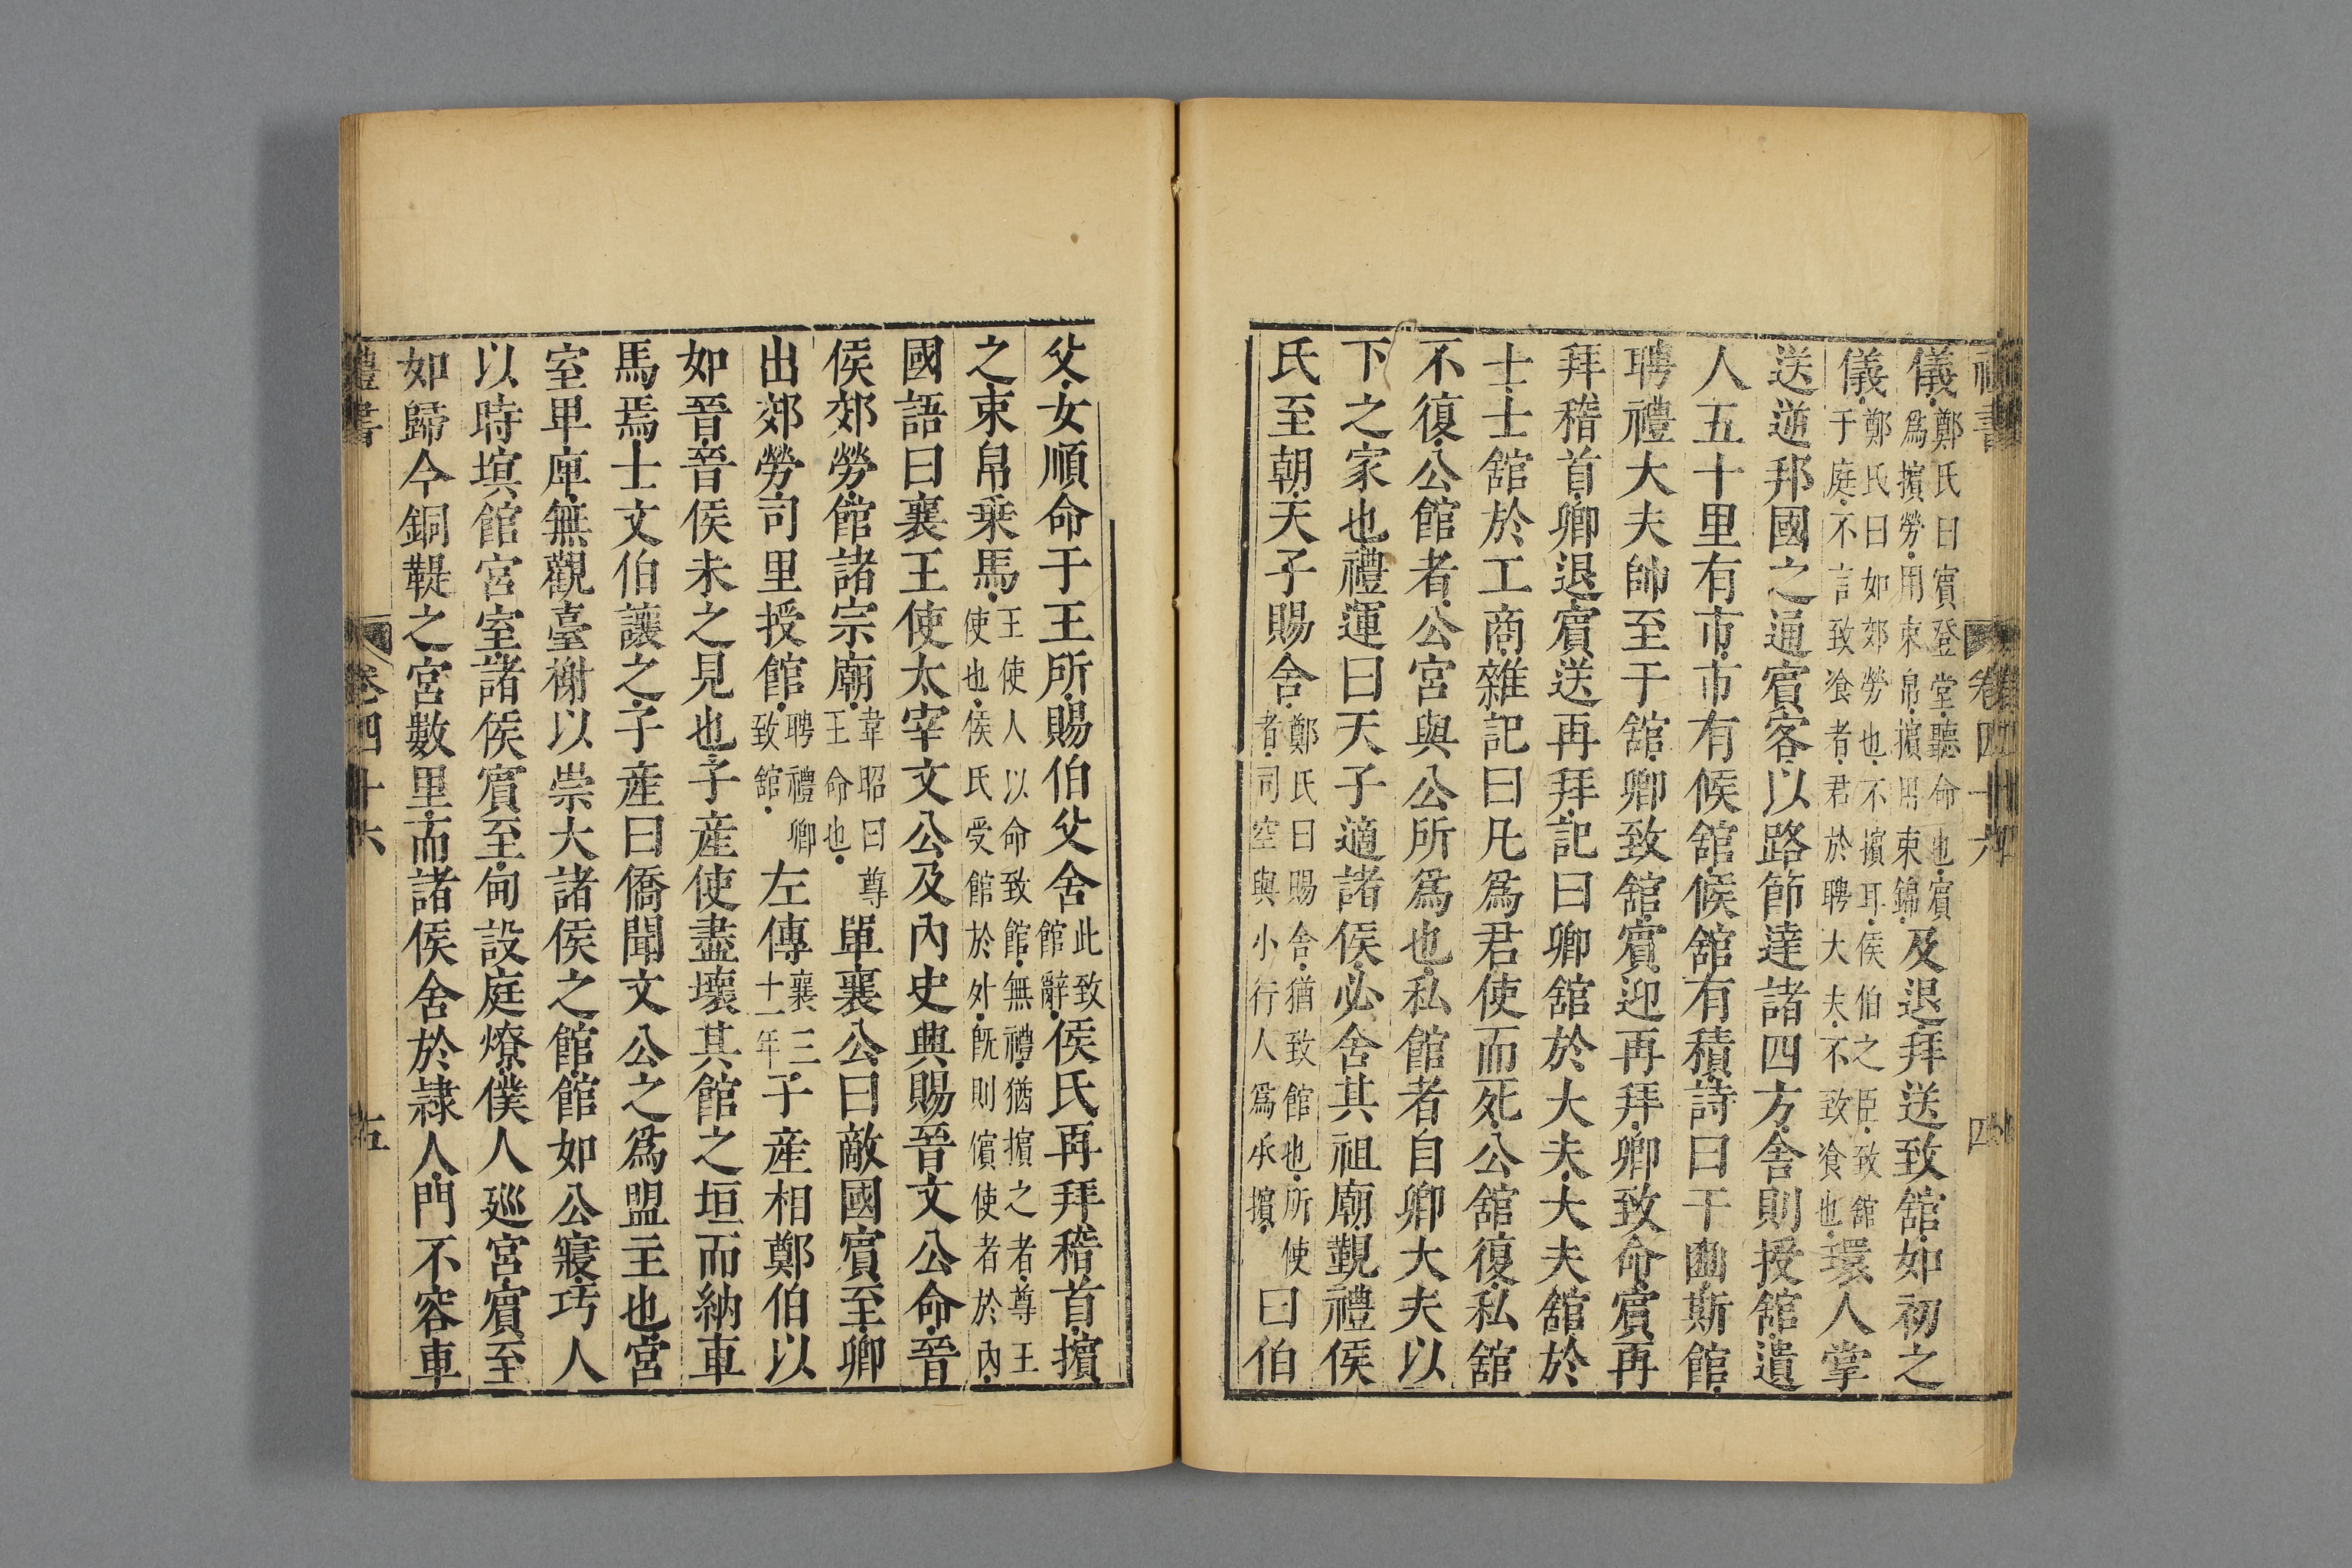 禮書　卷四十六　四
儀鄭氏曰賓登堂聽命也賓
爲擯勞用束帛擯用束錦及退拜送致舘如初之
儀鄭氏曰如郊勞也不擯耳侯伯之臣致舘
于庭不言致飧者君於聘大夫不致飧也環人掌
送逆邦國之通賓客以路節達諸四方舍則授舘遺
人五十里有市市有候舘候舘有積詩曰于豳斯館
聘禮大夫帥至于舘卿致舘賓迎再拜卿致命賓再
拜稽首卿退賓送再拜記曰卿舘於大夫大夫舘於
士士舘於工商雜記曰凡爲君使而死公舘復私舘
不復公館者公宮與公所爲也私館者自卿大夫以
下之家也禮運曰天子適諸侯必舍其祖廟覲禮侯
氏至朝天子賜舍鄭氏曰賜舍猶致館也所使
者司空與小行人爲承擯曰伯
父女順命于王所賜伯父舍此致
館辭侯氏再拜稽首擯
之束帛乗馬王使人以命致館無禮猶擯之者尊王
使也侯氏受館於外旣則儐使者於內
國語曰襄王使太宰文公及內史興賜晉文公命晉
侯郊勞館諸宗廟韋昭曰尊
王命也單襄公曰敵國賓至卿
出郊勞司里授館聘禮卿
致舘左傳襄三
十一年子產相鄭伯以
如晉晉侯未之見也子產使盡壞其館之垣而納車
馬焉士文伯讓之子產曰僑聞文公之爲盟主也宮
室卑庳無觀臺榭以崇大諸侯之館館如公寢圬人
以時塓館宮室諸侯賓至甸設庭燎僕人廵宮賓至
如歸今銅鞮之宮數里而諸侯舍於隸人門不容車
禮書　卷四十六　五